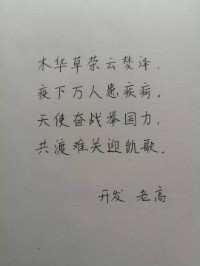 木华草荣云梦泽，
疫下万人患疾病。
天使奋战举国力，
共渡难关迎凯歌．
开发 老高